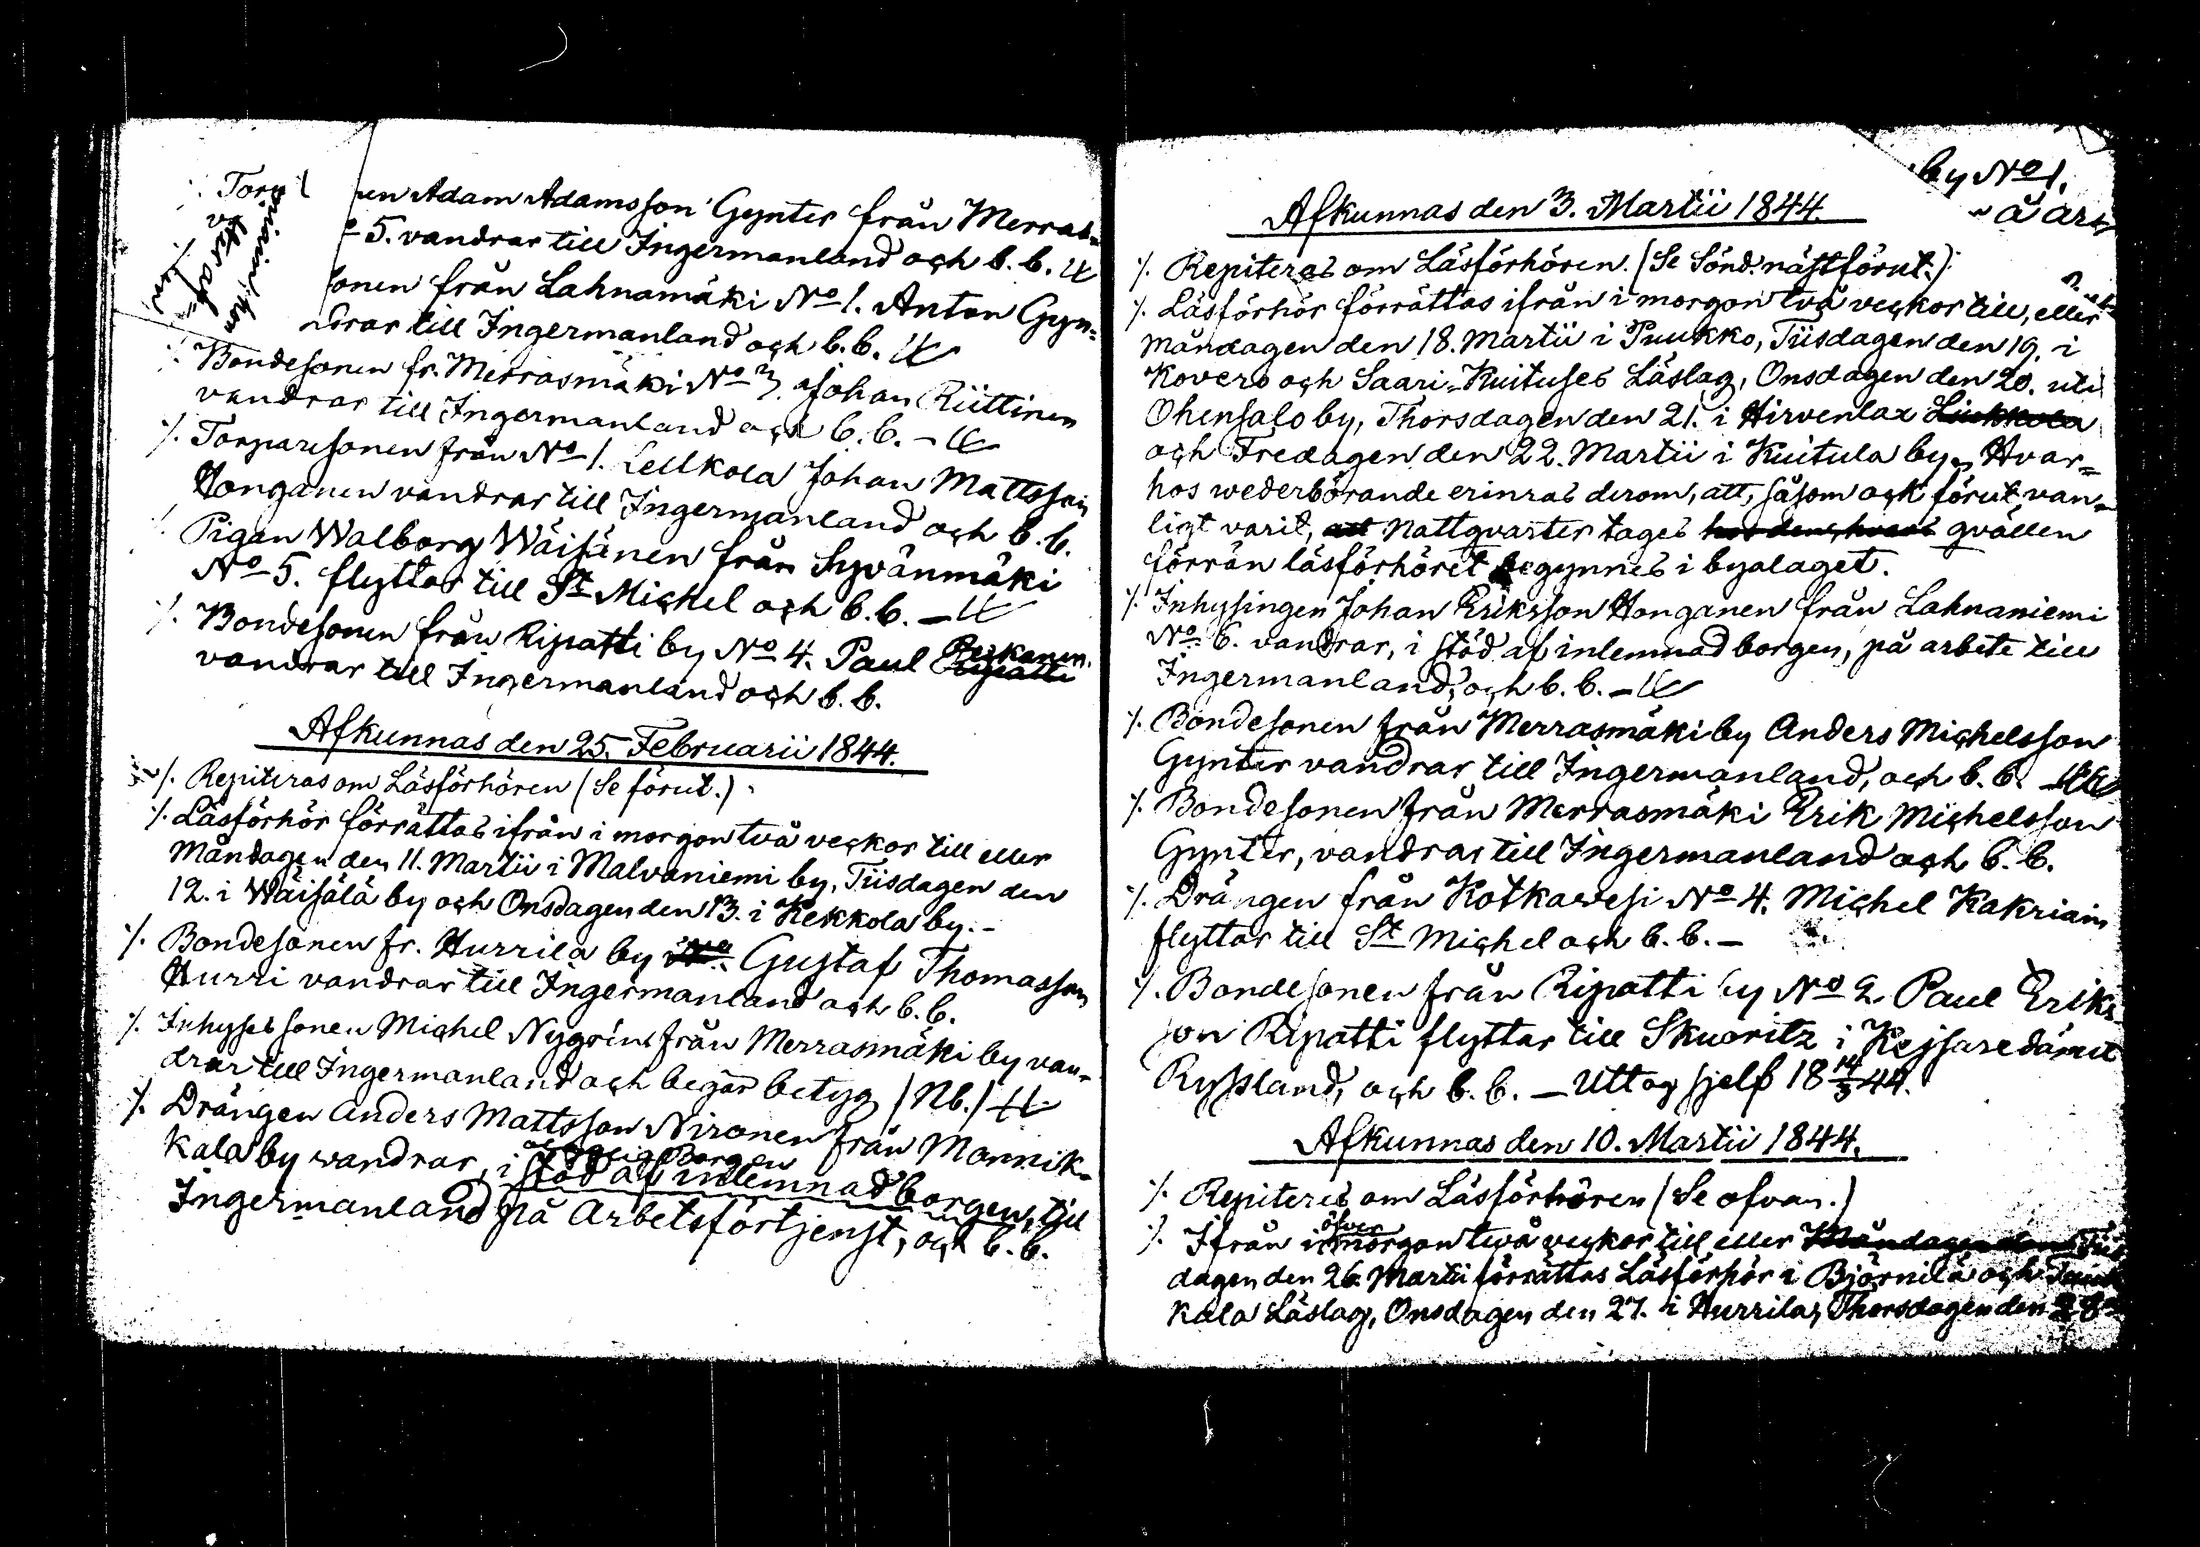 en Adam Adamsson Gynter från Merras-
5. vandrar till Ingermanland och b. b.
sonen från Lahnamäki No 1. Anton Gyn-
ndrar till Ingermanland och b. b.
Bondesonen fr. Merrasmäki No 3. Johan Riittinen
vandrar till Ingermanland och b. b. —
·/. Torparesonen från No 1. Lellkola Johan Mattsson
Honganen vandrar till Ingermanland och b. b.
Pigan Walborg Wäisänen från Syvänmäki
No 5. flyttar till St Michel och b. b. —
·/. Bondesonen från Ripatti by No 4. Paul Peskanen
vandrar till Ingermanland och b. b.
Afkunnas den 25. Februarii 1844.
·/. Repiteras om Läsförhören (Se förut.)
·/. Läsförhör förrättas ifrån i morgon två veckor till eller
Måndagen den 11. Martii i Malvaniemi by, Tiisdagen den
12. i Wäisälä by och Onsdagen den 13. i Kekkola by. —
·/. Bondesonen fr. Hurrila by Gustaf Thomasson
Hurri vandrar till Ingermanland och b. b.
·/. Inhysessonen Michel Nygrén från Merrasmäki by van-
drar till Ingermanland och begär betyg (Nb.)
·/. Drängen Anders Mattsson Nironen från Monnik-
kala by vandrar, i stöd af inlemnad borgen, till
Ingermanland på Arbetsförtjenst, och b. b.
by No 1.
Afkunnas den 3. Martii 1844
·/. Repiteras om Läsförhören. (Se Sönd. nästförut.)
·/. Läsförhör förrättas ifrån i morgon två veckor till, eller
Måndagen den 18. Martii i Puukko, Tiisdagen den 19. i
Kovero och Saari-Kuituses Läslag, Onsdagen den 20. uti
Ohensalo by, Thorsdagen den 21. i Hirvenlax Liukkola
och Fredagen den 22. Martii i Kuitula by. Hvar-
hos wederbörande erinras derom, att, såsom ock förut van-
ligt varit, att Nattqvarter tages qvällen
förrän läsförhöret begynnes i byalaget.
·/. Inhysingen Johan Eriksson Honganen från Lahnaniemi
No 6. vandrar, i stöd af inlemnad borgen, på arbete till
Ingermanland, och b. b. —
·/. Bondesonen från Merrasmäki by Anders Michelsson
Gynter vandrar till Ingermanland, och b. b.
·/. Bondesonen från Merrasmäki Erik Michelsson
Gynter, vandrar till Ingermanland och b. b.
·/. Drängen från Kotkavesi No 4. Michel Kakriain
flyttar till St Michel och b. b. —
·/. Bondesonen från Ripatti by No 2. Paul Eriks-
son Ripatti flyttar till Skuoritz i Kejsaredömet
Ryssland, och b. b. — Uttog sjelf 18 14/3 44.
Afkunnas den 10. Martii 1844.
·/. Repiteres om Läsförhören (Se ofvan.)
·/. Ifrån i öfver morgon två veckor till eller Måndagen den Tiis
dagen den 26. Martii förrättas Läsförhör i Björnilä och
kala Läslag, Onsdagen den 27. i Hurrila, Thorsdagen den 28